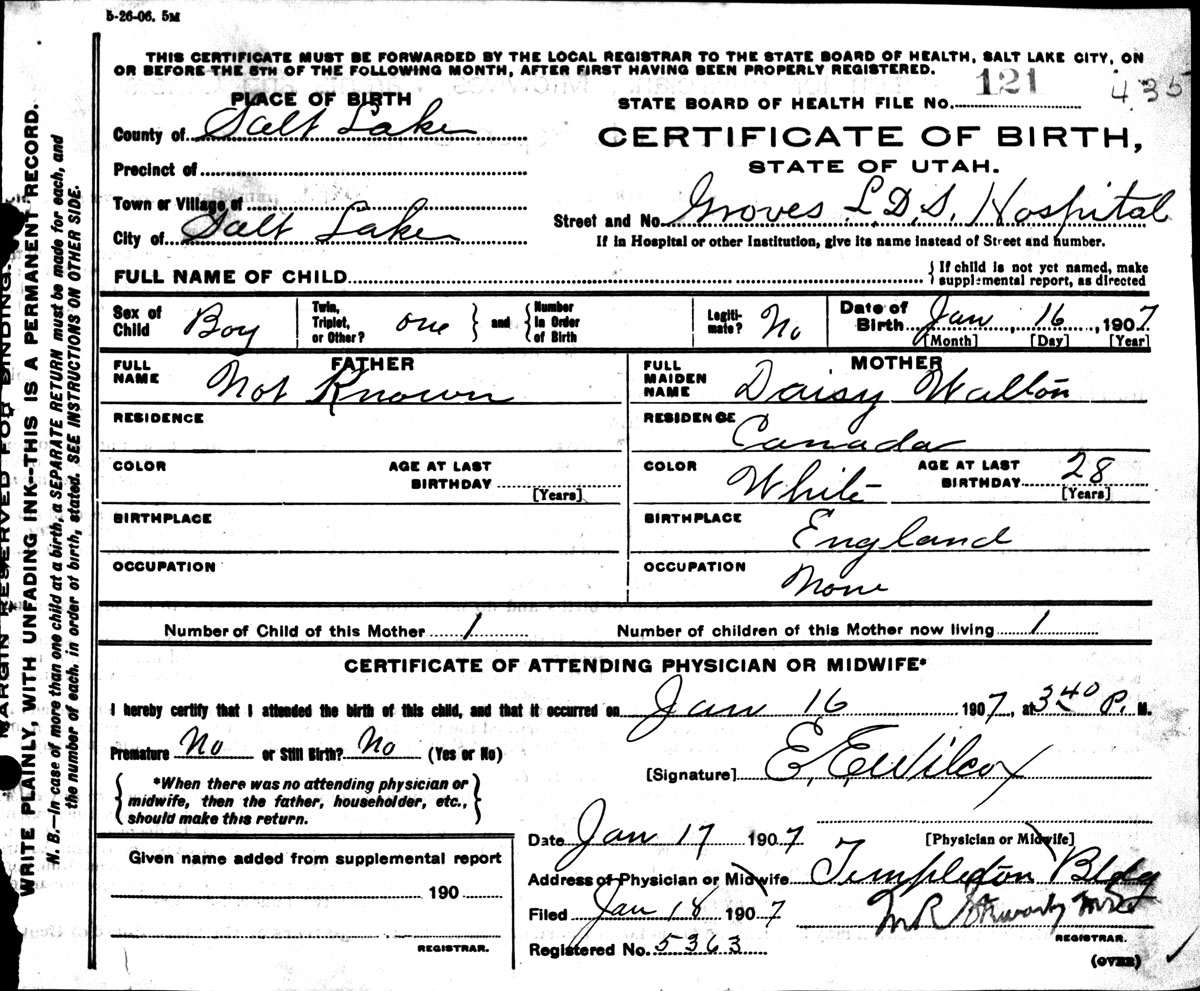 5-26-06. 5M
THIS CERTIFICATE MUST BE FORWARDED BY THE LOCAL REGISTRAR TO THE STATE BOARD OF HEALTH, SALT LAKE CITY, ON
OR BEFORE THE 5TH OF THE FOLLOWING MONTH, AFTER FIRST HAVING BEEN PROPERLY REGISTERED.
PLACE OF BIRTH
STATE BOARD OF HEALTH FILE No. 121 435
County of Salt Lake
CERTIFICATE OF BIRTH,
STATE OF UTAH.
Precinct of
Town or Village of
Street and No. Groves L.D.S. Hospital
City of Salt Lake
If in Hospital or other Institution, give its name instead of Street and number.
FULL NAME OF CHILD { If child is not yet named, make supplemental report, as directed
Sex of Child Boy
Twin, Triplet, or Other? one } and { Number in Order of Birth
Legitimate? No
Date of Birth Jan, 16, 1907
[Month] [Day] [Year]
FATHER
FULL NAME Not Known
RESIDENCE
COLOR AGE AT LAST BIRTHDAY
[Years]
BIRTHPLACE
OCCUPATION
MOTHER
FULL MAIDEN NAME Daisy Walton
RESIDENCE Canada
COLOR White AGE AT LAST BIRTHDAY 28
[Years]
BIRTHPLACE England
OCCUPATION None
Number of Child of this Mother 1 Number of children of this Mother now living 1
CERTIFICATE OF ATTENDING PHYSICIAN OR MIDWIFE*
I hereby certify that I attended the birth of this child, and that it occurred on Jan 16 1907, at 3 40 P. M.
Premature No or Still Birth? No (Yes or No)
[Signature] E. E. Wilcox
{ *When there was no attending physician or
midwife, then the father, householder, etc.,
should make this return. }
Date Jan 17 1907 [Physician or Midwife]
Given name added from supplemental report
190
REGISTRAR.
Address of Physician or Midwife Templeton Bldg
Filed Jan 18 1907 M R
REGISTRAR.
Registered No. 5363
(OVER)
MARGIN RESERVED FOR BINDING.
WRITE PLAINLY, WITH UNFADING INK--THIS IS A PERMANENT RECORD.
N. B.—In case of more than one child at a birth, a SEPARATE RETURN must be made for each, and
the number of each, in order of birth, stated. SEE INSTRUCTIONS ON OTHER SIDE.